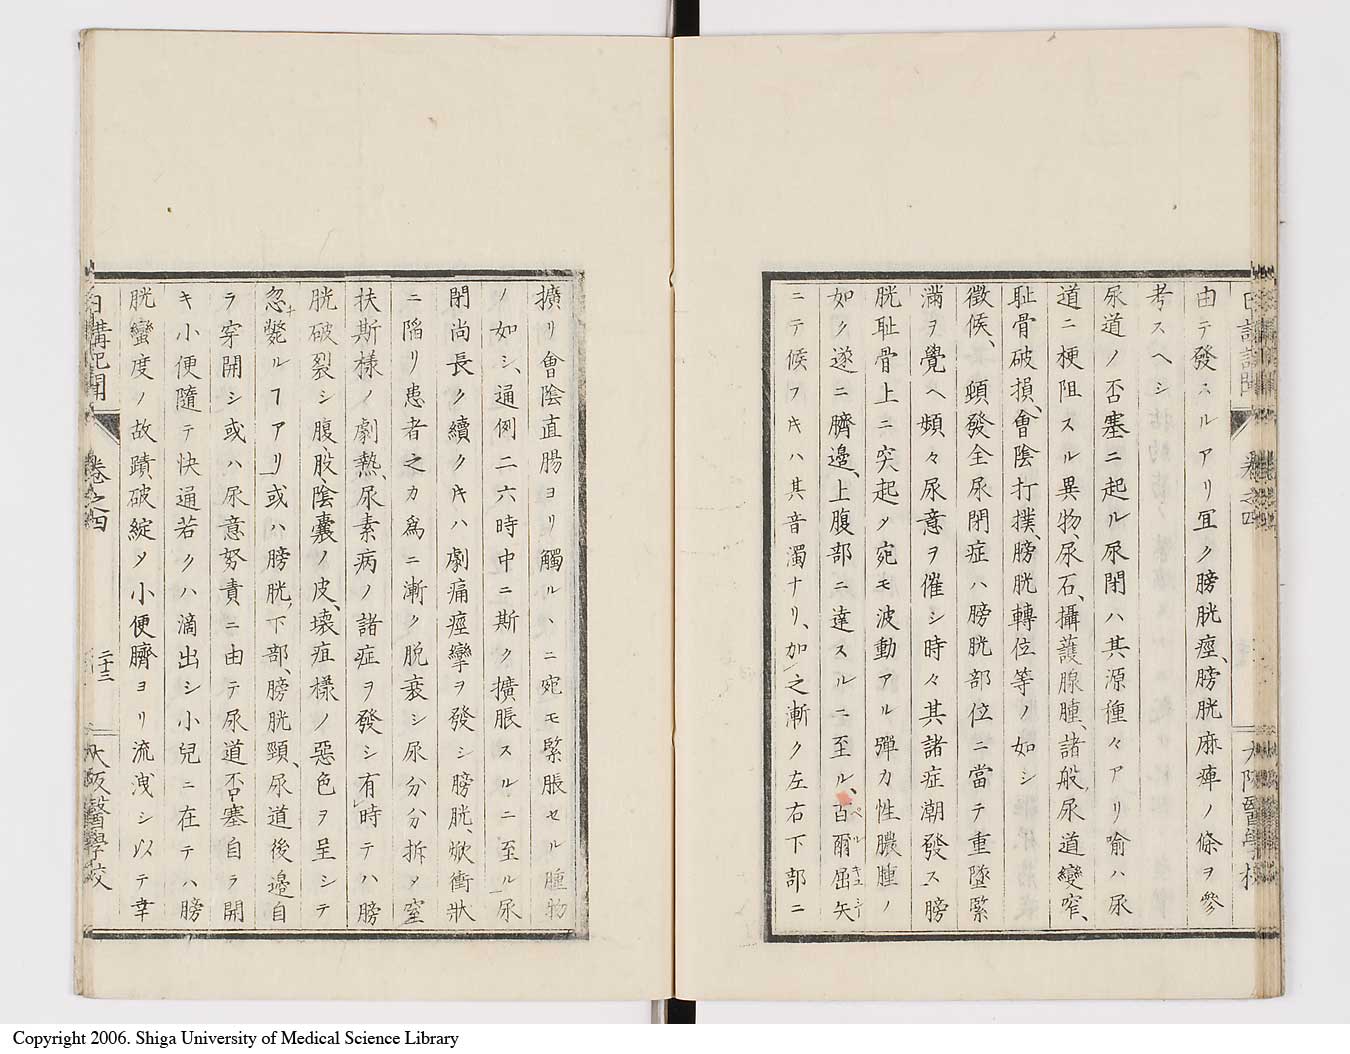 日講記聞 卷之四 大阪醫學校
由テ發スルアリ冝ク膀胱痙、膀胱麻痺ノ條ヲ參
考スヘシ
尿道ノ否塞ニ起ル尿閉ハ其源種々アリ喻ハ尿
道ニ梗阻スル異物、尿石、攝護腺腫、諸般尿道變窄、
耻骨破損、會陰打撲、膀胱轉位等ノ如シ
徴候、 頓發全尿閉症ハ膀胱部位ニ當テ重墜緊
滿ヲ覺ヘ頻々尿意ヲ催シ時々其諸症潮發ス膀
胱耻骨上ニ突起ク宛モ波動アル彈力性膿腫ノ
如ク遂ニ臍邊、上腹部ニ達スルニ至ル、百爾屈矢
ニテ候フキハ其音濁ナリ、加之漸ク左右下部ニ
擴リ會陰直腸ヨリ觸ルハニ宛モ緊脹セル腫物
ノ如シ、通例二六時中ニ斯ク擴脹スルニ至ル尿
閉尚長ク續クキハ劇痛痙攣ヲ發シ膀胱、焮衝狀
ニ陷リ患者之カ爲ニ漸ク脫衰シ尿分分拆メ窒
扶斯樣ノ劇熱、尿素病ノ諸症ヲ發シ有時テハ膀
胱破裂シ腹股、陰囊ノ皮、壞疽樣ノ惡色ヲ呈シテ
忽チ斃ルヿアリ或ハ膀胱、下部、膀胱頸、尿道後邊自
ラ穿開シ或ハ尿意努責ニ由テ尿道否塞自ラ開
キ小便隨テ快通若クハ滴出シ小兒ニ在テハ膀
胱蠻度ノ故蹟破綻タ小便臍ヨリ流洩シ以テ幸
日講記聞 卷之四 二十三 大阪醫學校
Copyright 2006. Shiga University of Medical Science Library